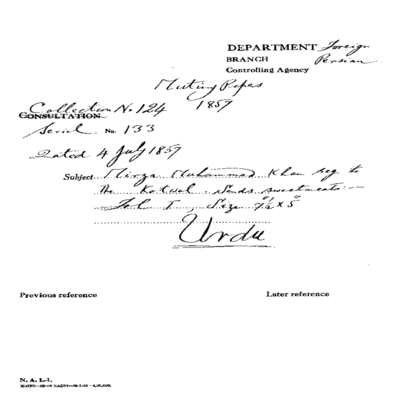 DEPARTMENT Foreign
BRANCH Persian
Controlling Agency
Mutiny Papers
Collection No. 124 1857
CONSULTATION
Serial No. 133
Dated 4 July 1857
Subject Mirza Muhammad Khan reg to
the Kotwal. Sends sweetmeats:—
Fol. 1, Size 7½ x 5
Urdu
Previous reference Later reference
N. A. I.-1.